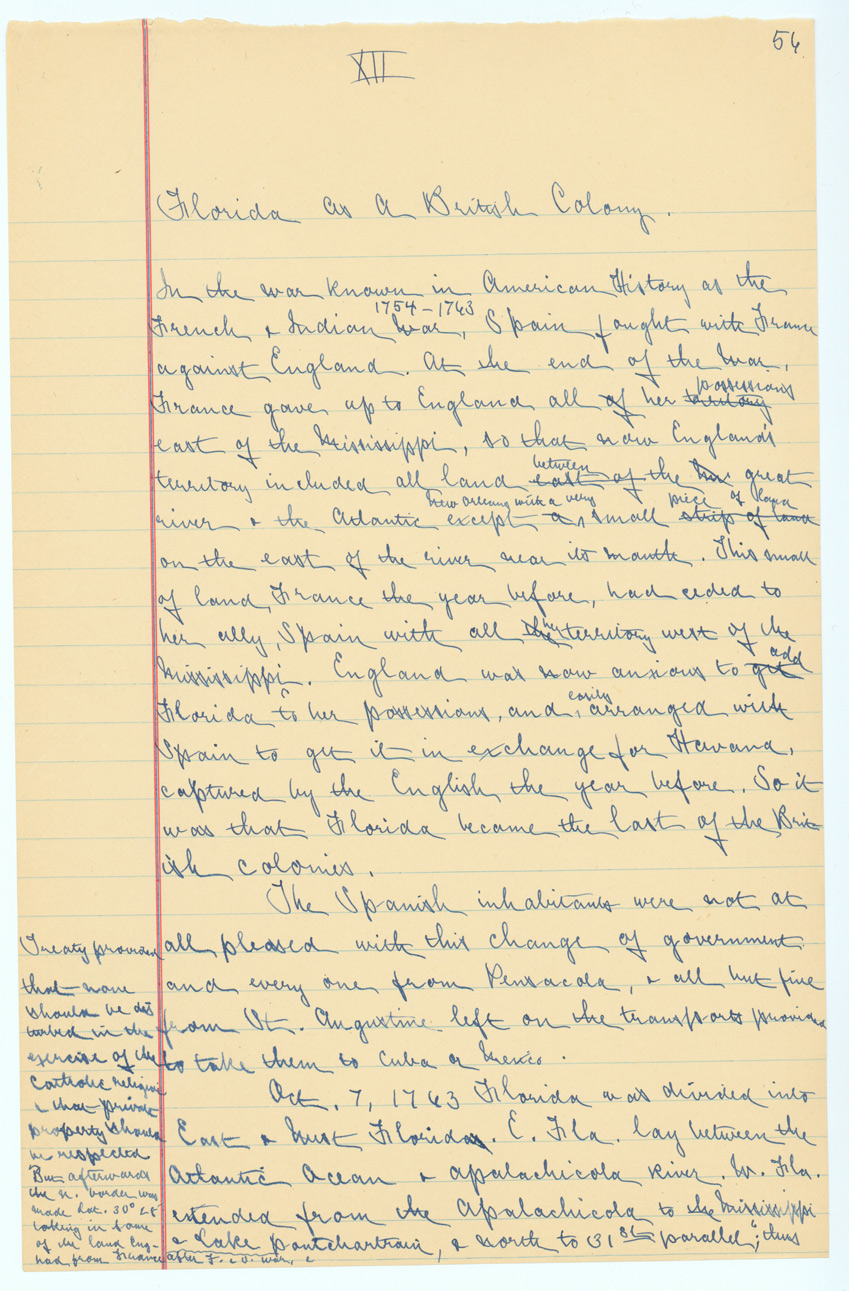 56
XII
Florida as a British Colony.
In the war known in American History as the
1754-1763
French & Indian War, Spain fought with France
against England. At the end of the War,
possessions
France gave up to England all of her territory
east of the Mississippi, so that now England's
between
territory included all land east of the great
New Orleans with a very piece of land
river & the Atlantic except a small strip of land
on the east of the river near its mouth. This small
of land, France the year before, had ceded to
her ally, Spain with all the her territory west of the
add
Mississippi. England was now anxious to get
easily
Florida to her possessions, and, arranged with
Spain to get it in exchange for Havana,
captured by the English the year before. So it
was that Florida became the last of the Brit-
ish colonies.
The Spanish inhabitants were not at
all pleased with this change of government
and every one from Pensacola, & all but five
from St. Augustine left on the transports provided
to take them to Cuba or Mexico.
Oct. 7, 1763 Florida was divided into
East & West Florida. E. Fla. lay between the
Atlantic Ocean & Apalachicola River. W. Fla.
extended from the Apalachicola to the Mississippi
& Lake Pontchartrain, & north to 31st parallel; thus
Treaty provided
that none
should be dis
turbed in the
exercise of the
Catholic religion
& that private
property should
be respected
But afterwards
the n. border was
made Lat. 30°
taking in some
of the land Eng-
had from France after F. & I. war,